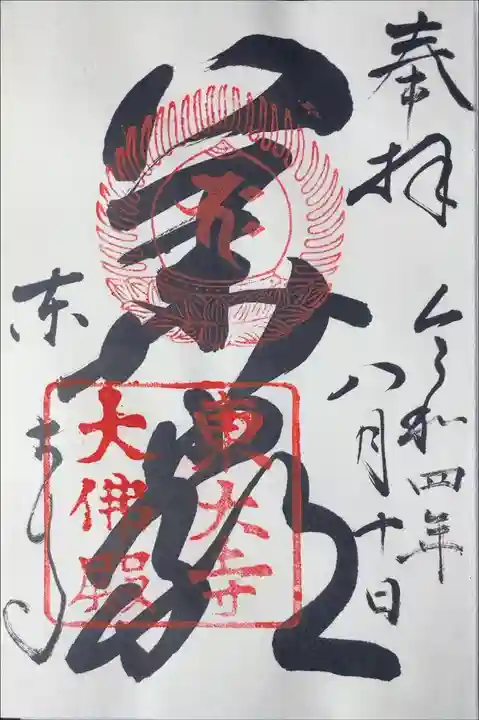 奉拝
令和四年
八月十日
華厳
東大寺
東大寺
大佛殿